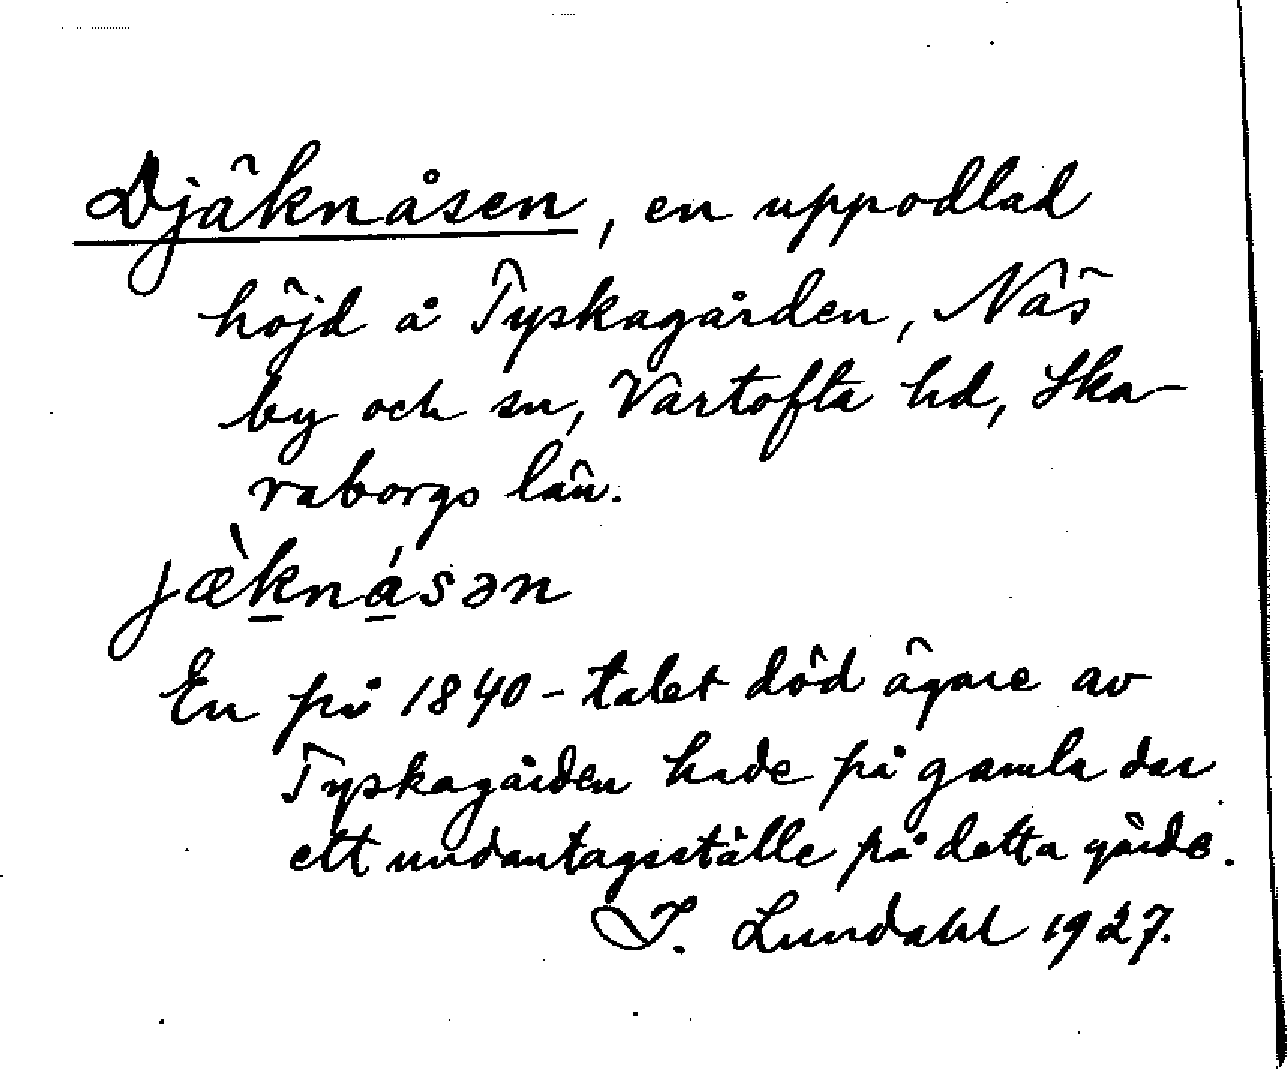 Djäknåsen, en uppodlad
höjd å Tyskagården, Näs
by och sn, Vartofta hd, Ska-
raborgs län.
jæ̀knåsən
En på 1840-talet död ägare av
Tyskagården hade på gamla dar
ett undantagsställe på detta gärde.
I. Lundahl 1927.